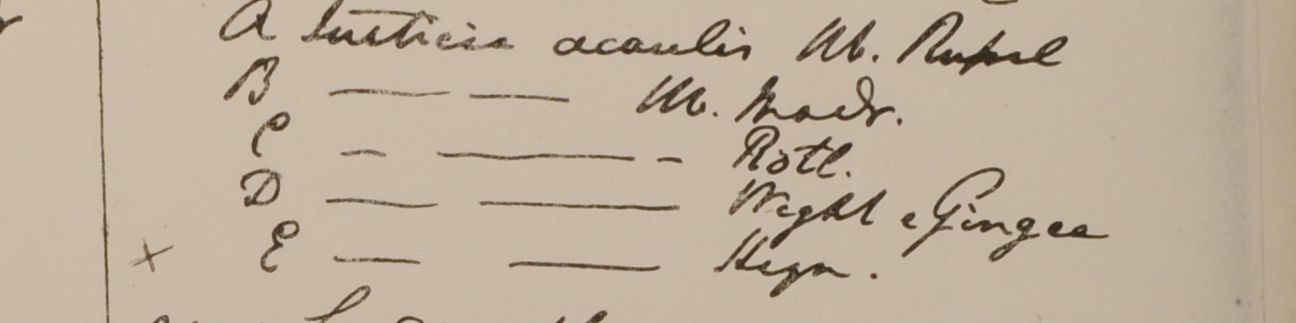 A Justicia acaulis Hb. Russel
B — — Hb. Madr.
C — — - Rottl.
D — — Wight e Gingee
× E — — Heyn.